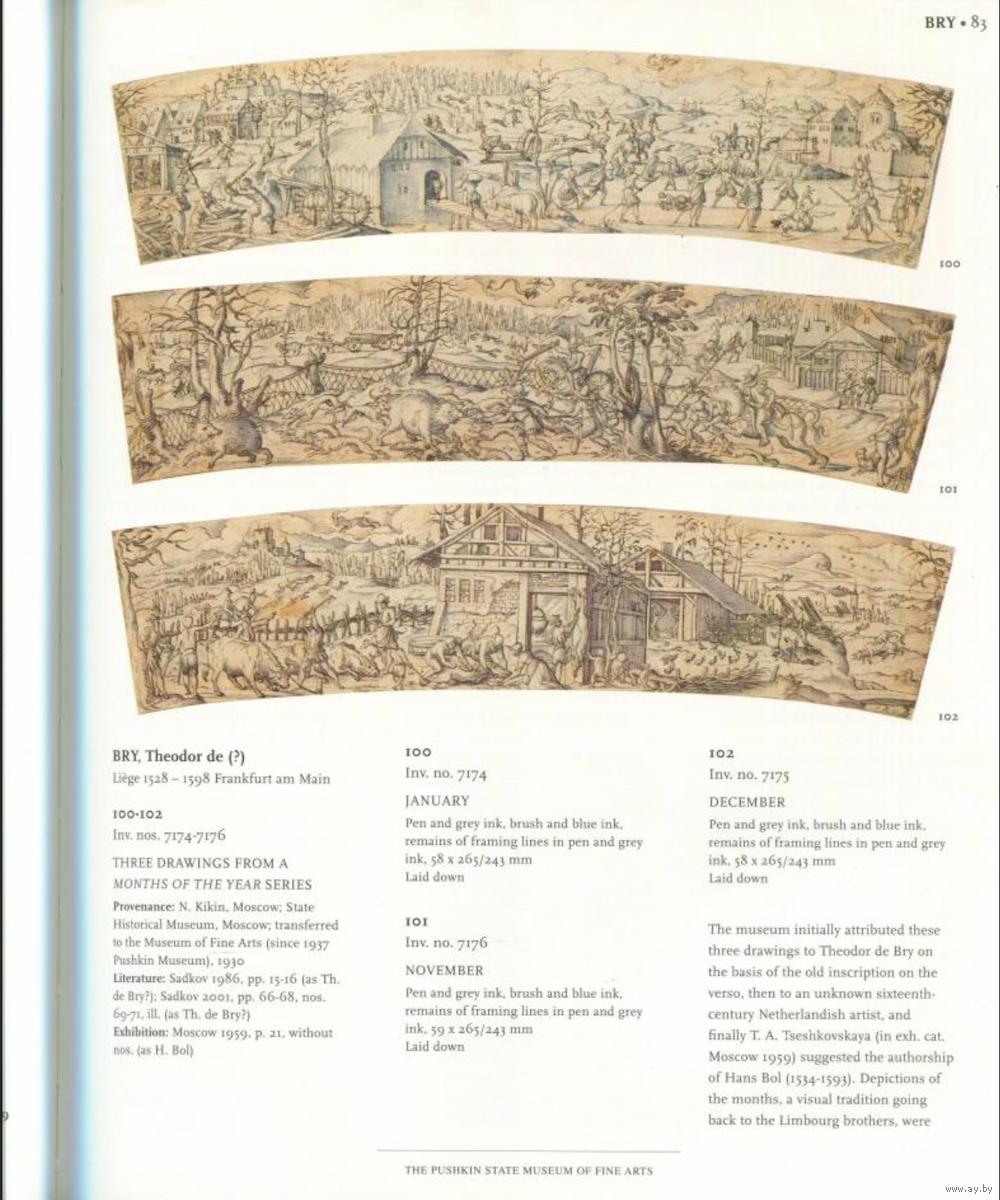 BRY • 83
100
101
102
BRY, Theodor de (?)
Liège 1528 – 1598 Frankfurt am Main
100-102
Inv. nos. 7174-7176
THREE DRAWINGS FROM A
MONTHS OF THE YEAR SERIES
Provenance: N. Kikin, Moscow; State
Historical Museum, Moscow; transferred
to the Museum of Fine Arts (since 1937
Pushkin Museum), 1930
Literature: Sadkov 1986, pp. 15-16 (as Th.
de Bry?); Sadkov 2001, pp. 66-68, nos.
69-71, ill. (as Th. de Bry?)
Exhibition: Moscow 1959, p. 21, without
nos. (as H. Bol)
100
Inv. no. 7174
JANUARY
Pen and grey ink, brush and blue ink,
remains of framing lines in pen and grey
ink, 58 x 265/243 mm
Laid down
101
Inv. no. 7176
NOVEMBER
Pen and grey ink, brush and blue ink,
remains of framing lines in pen and grey
ink, 59 x 265/243 mm
Laid down
102
Inv. no. 7175
DECEMBER
Pen and grey ink, brush and blue ink,
remains of framing lines in pen and grey
ink, 58 x 265/243 mm
Laid down
The museum initially attributed these
three drawings to Theodor de Bry on
the basis of the old inscription on the
verso, then to an unknown sixteenth-
century Netherlandish artist, and
finally T. A. Tseshkovskaya (in exh. cat.
Moscow 1959) suggested the authorship
of Hans Bol (1534-1593). Depictions of
the months, a visual tradition going
back to the Limbourg brothers, were
9
THE PUSHKIN STATE MUSEUM OF FINE ARTS
www.ay.by